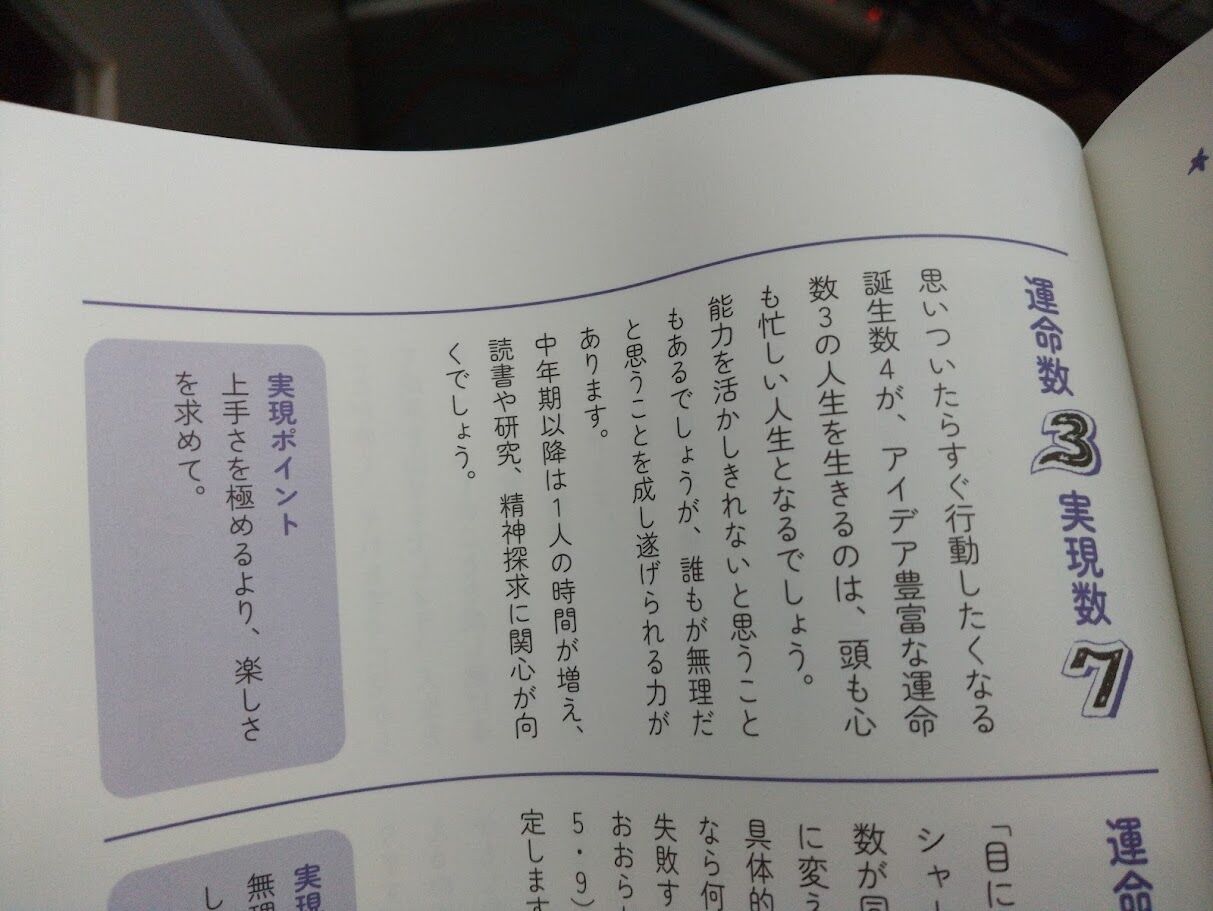 運命数 3 実現数 7
思いついたらすぐ行動したくなる
誕生数4が、アイデア豊富な運命
数3の人生を生きるのは、頭も心
も忙しい人生となるでしょう。
能力を活かしきれないと思うこと
もあるでしょうが、誰もが無理だ
と思うことを成し遂げられる力が
あります。
中年期以降は1人の時間が増え、
読書や研究、精神探求に関心が向
くでしょう。
実現ポイント
上手さを極めるより、楽しさ
を求めて。
運命
「目に
シャ
数が同
に変え
具体的
なら何
失敗す
おおら
5・9)
定します
実現
無理
し